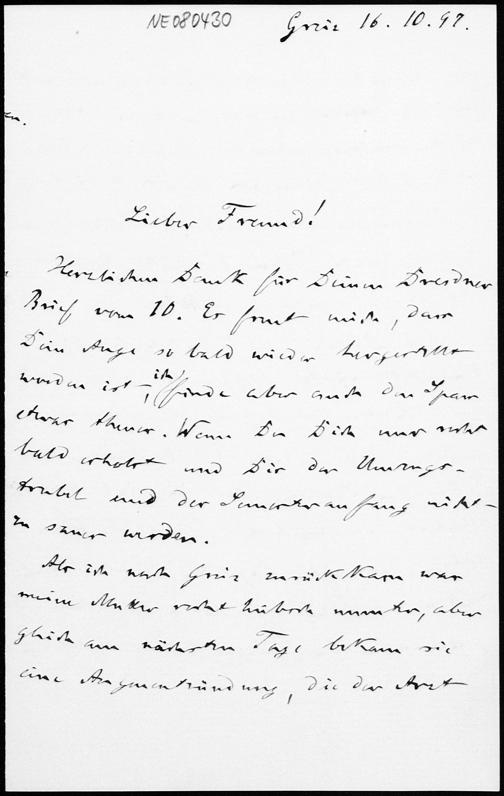 NE080430
Greiz 16. 10. 97.
Lieber Freund!
Herzlichen Dank für Deinen Dresdner
Brief vom 10. Es freut mich, dass
Dein Auge so bald wieder hergestellt
worden ist, ich finde aber auch den Spass
etwas theuer. Wenn Du Dich nur recht
bald erholst und Dir der Umzugs-
trubel und der Semesteranfang nicht
zu sauer werden.
Als ich nach Greiz zurückkam war
meine Mutter recht hübsch munter, aber
gleich am nächsten Tage bekam sie
eine Augenentzündung, die der Arzt